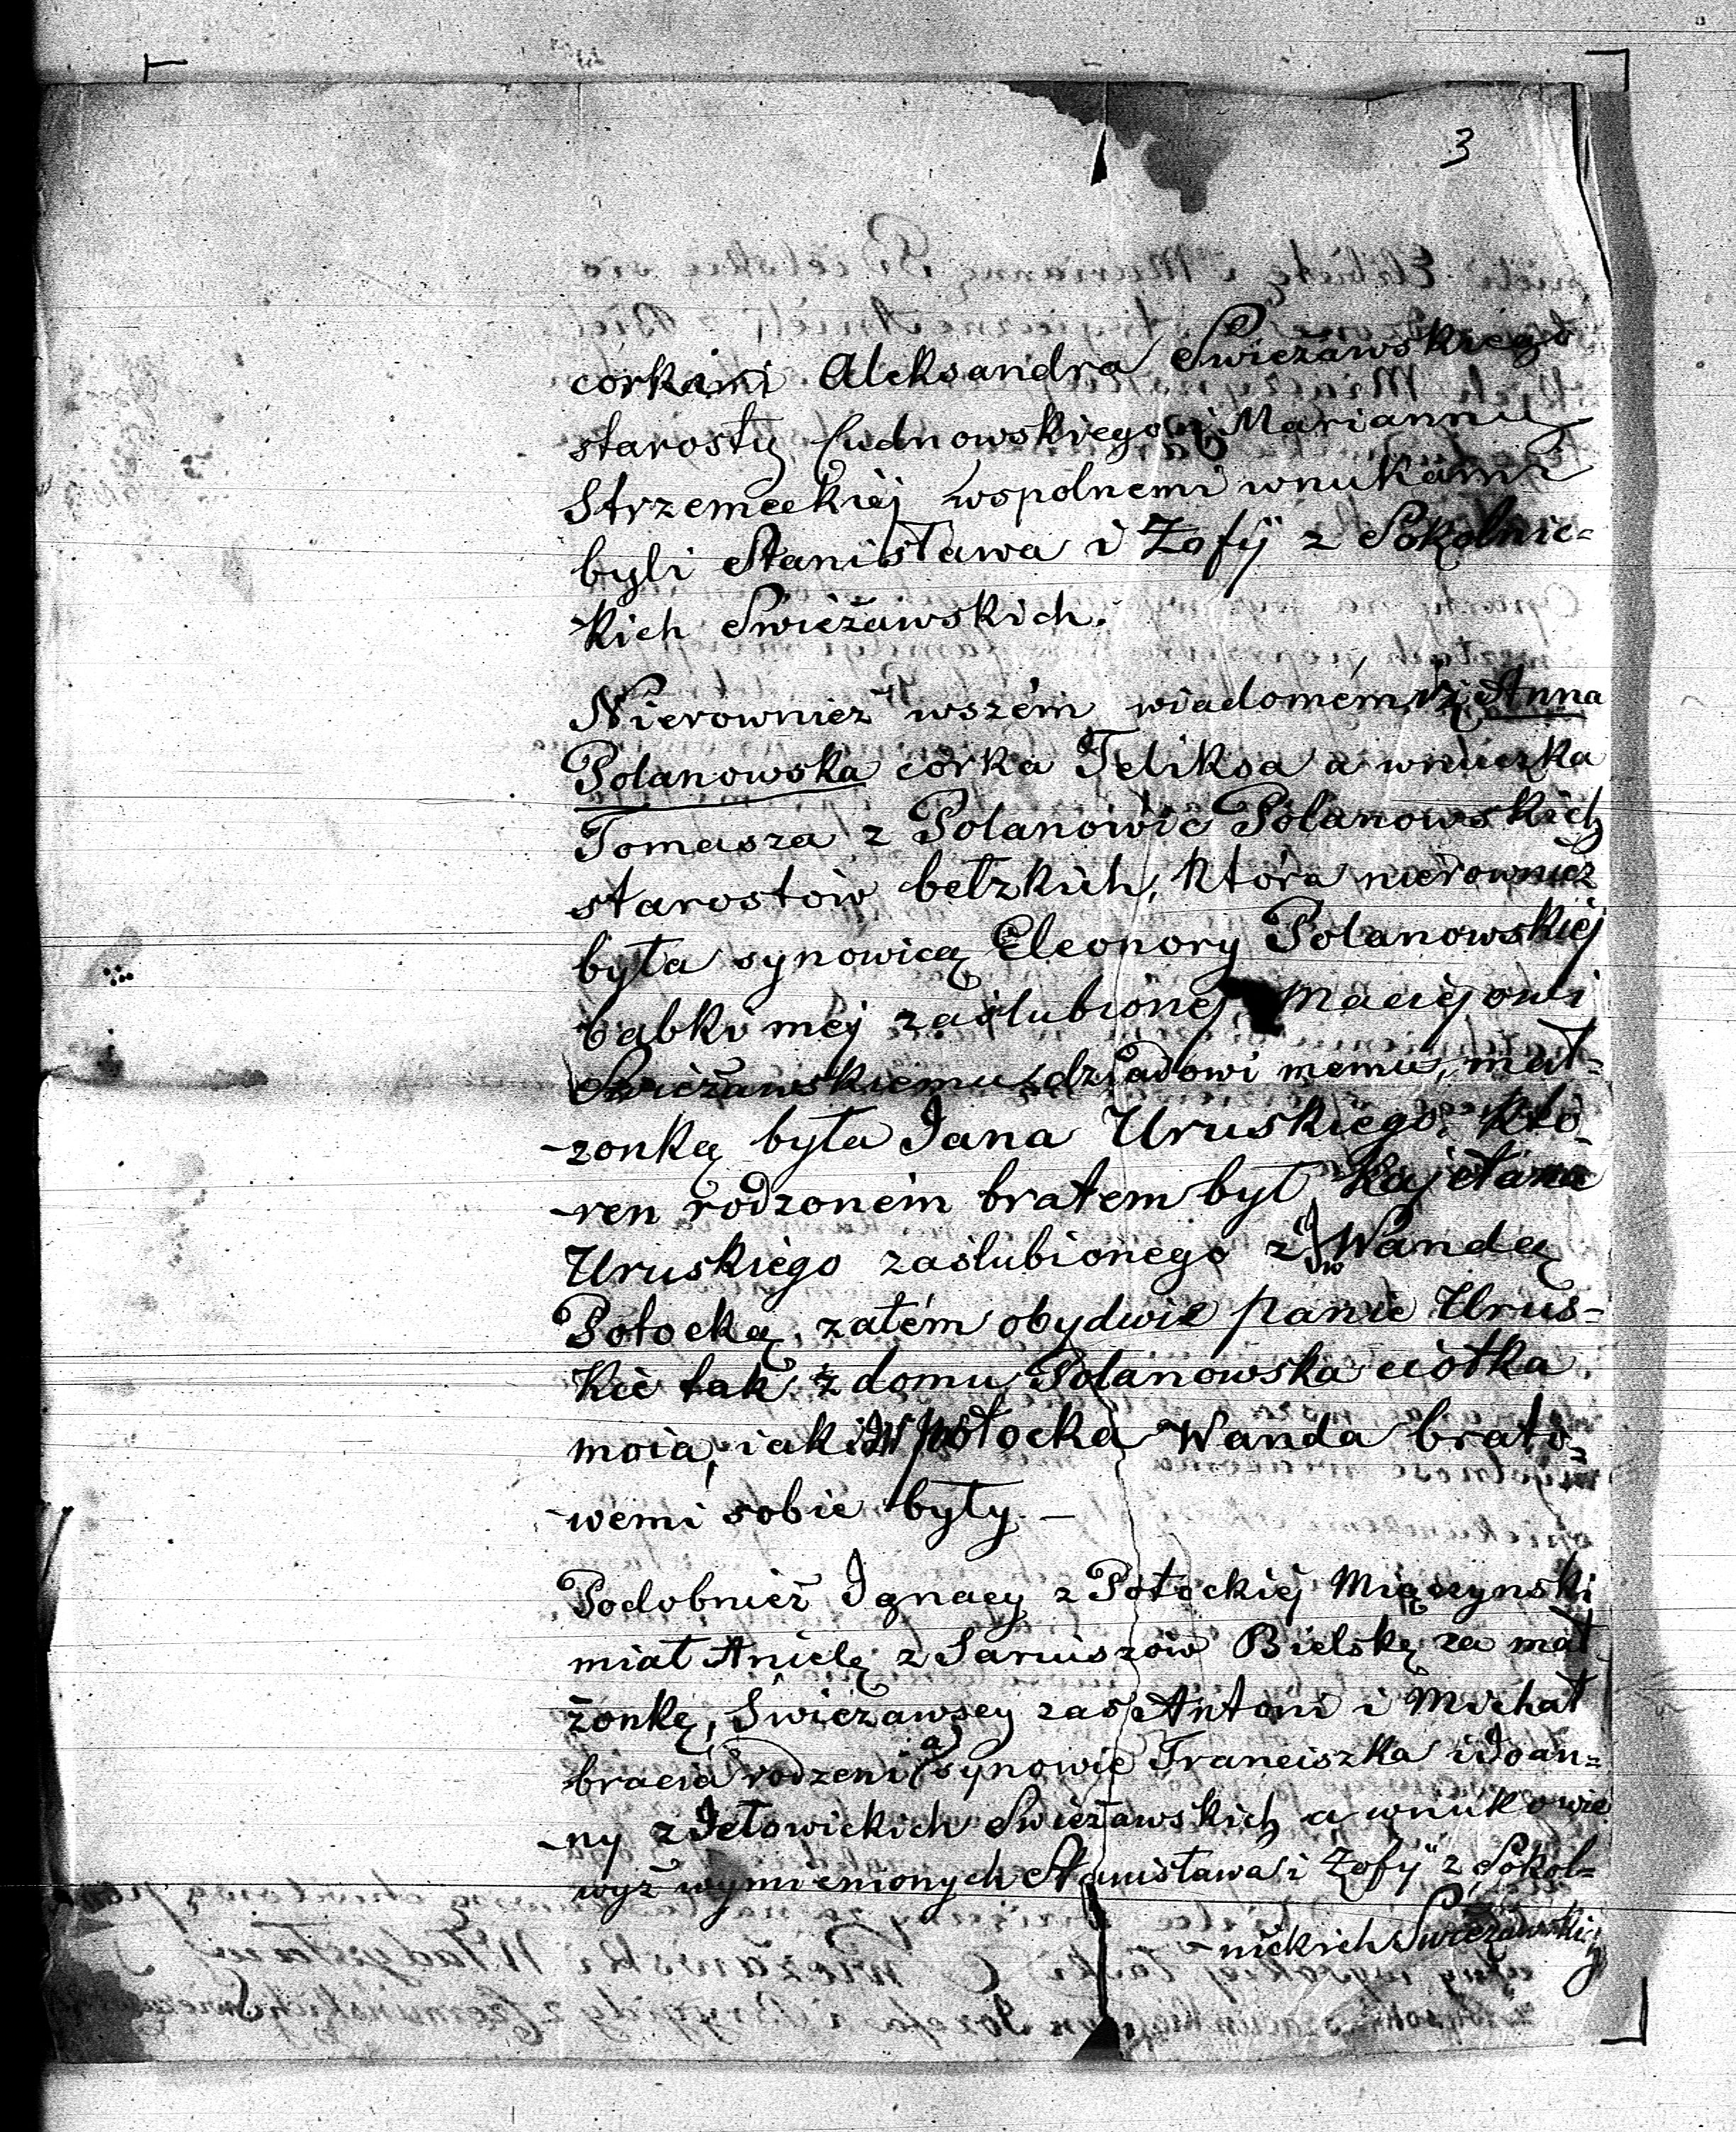 3
corkami Aleksandra Swieżawskiego
starosty ludnowskiego i Marianny
Strzemeckiej wspolnemi wnukami
byli Stanisława i Zofÿ z Sokolnic=
kich Swieżawskich.
Nierownież wszém wiadomém, iż Anna
Polanowska córka Feliksa a wnuczka
Tomasza z Polanowic Polanowskich
starostów bełzkich, która nierownież
była synowicą Eleonory Polanowskiej
babki mej zaślubionej Maciejowi
Swieżawskiemu dziadowi memu, mał=
-zonką była Jana Uruskiego. Któ-
-ren rodzoném bratem był Kajetana
Uruskiego zaślubionego z Wandą
Potocką, zatém obydwie panie Urus=
kie tak z domu Polanowska ciotka
moia, iak i Potocka Wanda brato=
-wemi sobie były. —
Podobnież Ignacy z Potockiej Miączynski
miał Anielę z Jariuszów Bielską za mał
żonkę, Swieżawscy zaś Antoni i Michał
bracia rodzeni a synowie Franciszka i Joan=
-ny z Jełowickich Swieżawskich a wnukowie
wyż wymienionych Stanisława i Zofÿ z Sokol=
-nickich Swieżawskich